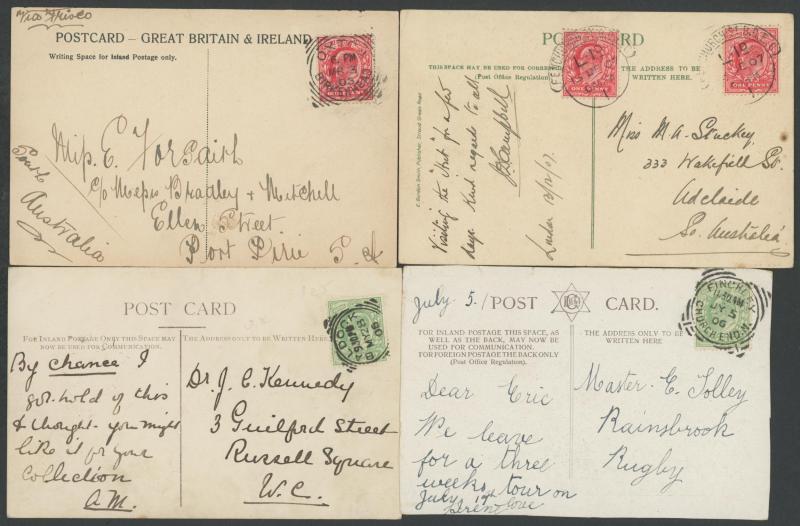 Via Frisco
POSTCARD – GREAT BRITAIN & IRELAND.
Writing Space for Inland Postage only.
Miss E Forsaith
c/o Messrs Bradley & Mitchell
Ellen Street
Port Pirie S. A
South
Australia
POST CARD
THIS SPACE MAY BE USED FOR
(Post Office Regulation).
THE ADDRESS TO BE
WRITTEN HERE.
ONE PENNY
ONE PENNY
Visiting the
days. Kind regards to all
Campbell
London
Miss M. A. Stuckey,
333 Wakefield St.
Adelaide
So. Australia
POST CARD
FOR INLAND POSTAGE ONLY THIS SPACE MAY
NOW BE USED FOR COMMUNICATION.
THE ADDRESS ONLY TO BE WRITTEN HERE.
By chance I
got hold of this
& thought you might
like it for your
collection
A.M.
Dr. J. C. Kennedy
3 Guilford Street
Russell Square
W.C.
BALDOCK
July 5. / POST CARD.
FOR INLAND POSTAGE THIS SPACE, AS
WELL AS THE BACK, MAY NOW BE
USED FOR COMMUNICATION.
FOR FOREIGN POSTAGE THE BACK ONLY
(Post Office Regulation).
THE ADDRESS ONLY TO BE
WRITTEN HERE
FINCHLEY
JY 5
06
CHURCH END. N.
Dear Eric
We leave
for a three
weeks tour on
July
love
Master E. Tolley
Rainsbrook
Rugby